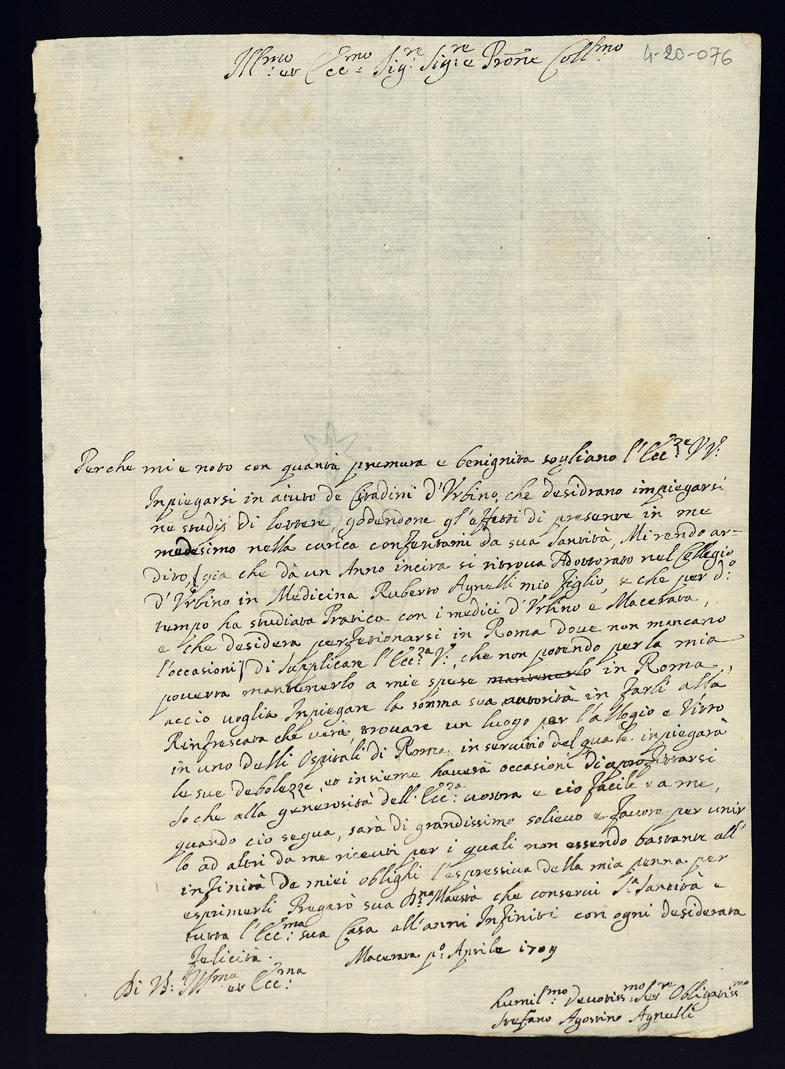 Ill:mo et Ecc:mo Sig:re Sig:re e Prone Coll:mo
4-20-076
Perche mi e noto con quanta premura e benignita sogliano l'Ecc:ze VV:
Inpiegarsi in aiuto de Citadini d'Urbino, che desidrano impiegarsi
ne studij di lettere, godendone gl'effetti di presente in me
medesimo nella carica conferitami da sua Santità, Mi rendo ar=
dito, [gia che dà un Anno incirca si ritroua Adottorato nel Collegio
d'Urbino in Medicina Ruberto Agnelli mio figlio, e che per d:o
tempo ha studiata Pratica con i medici d'Urbino e Macerata,
e che desidera perfetionarsi in Roma doue non mancano
l'occasioni] di supplicare l'Ecc:za V:, che non potendo per la mia
pouerta mantenerlo a mie spese mantenerlo in Roma,
accio voglia Inpiegare la somma sua autorità in farli alla
Rinfrescata che verà, trouare un luogo per l'allogio e Vitto
in uno delli Ospitali di Roma in seruitio del quale inpiegarà
le sue debolezze, et insieme hauerà occasioni di aprofittarsi
so che alla generosità dell'Ecc:za uostra e ciò facile e a me,
quando cio segua, sarà di grandissimo solieuo e fauore per unir
lo ad altri da me riceuti per i quali non essendo bastante all'
infinità de miei oblighi l'espressiua della mia penna per
esprimerli Pregarò sua Dna Maestà che conserui S:a Santità e
tutta l'Ecc:ma sua Casa all'anni Infiniti con ogni desiderata
felicita. Macerata p:o Aprile 1709
Di V: Ill:ma et Ecc:ma
humil:mo Deuotiss:mo Ser:re Obligatiss:mo
Stefano Agostino Agnelli